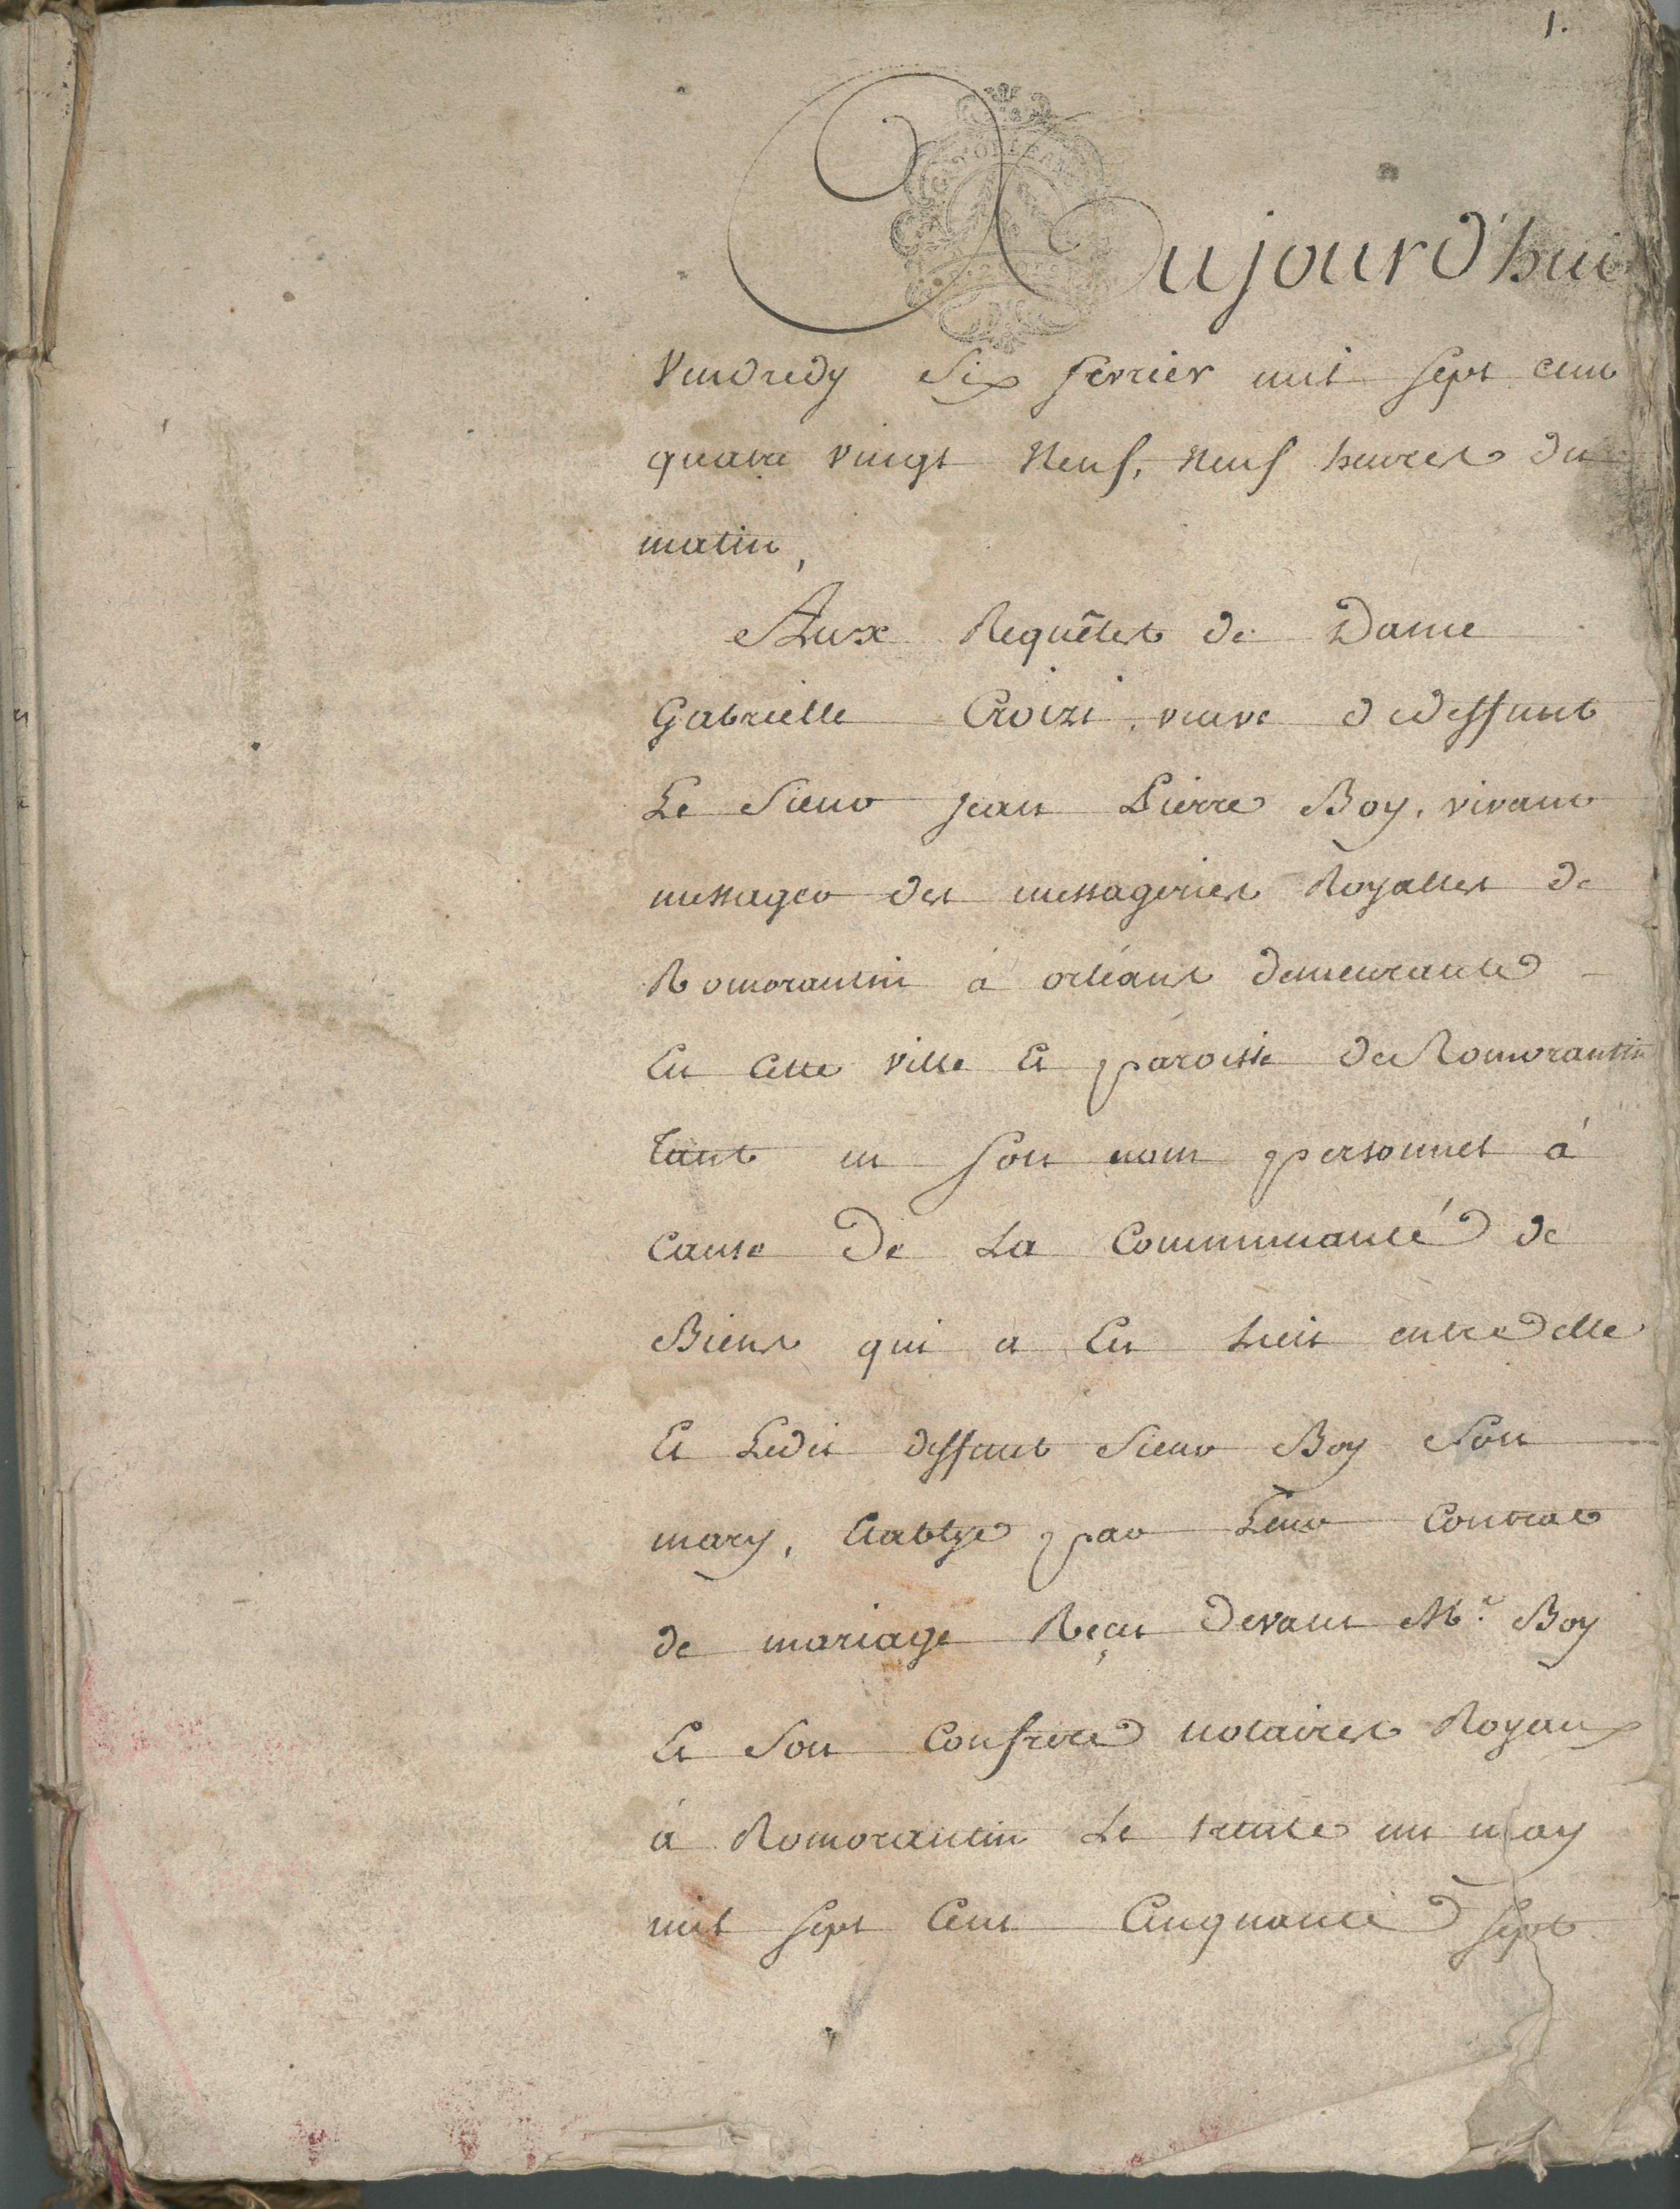 1.
Aujourd'hui
Vendredy six fevrier mil sept cent
quatre vingt neuf, neuf heures du
matin,
Aux Requêtes de Dame
Gabrielle Croizé, veuve de deffunt
Le Sieur Jean Pierre Boy, vivant
messager des messageries Royalles de
Romorantin à orléans demeurante
En Cette ville Et paroisse de Romorantin
tant en son nom personnel à
Cause De La Communauté de
Biens qui a Eu Lieu entre elle
Et Ledit deffunt Sieur Boy Son
mary, Etablye par Leur Contrat
de mariage Reçu Devant Me. Boy
Et Son Confrere notaires Royaux
à Romorantin Le trente un may
mil sept Cent Cinquante sept